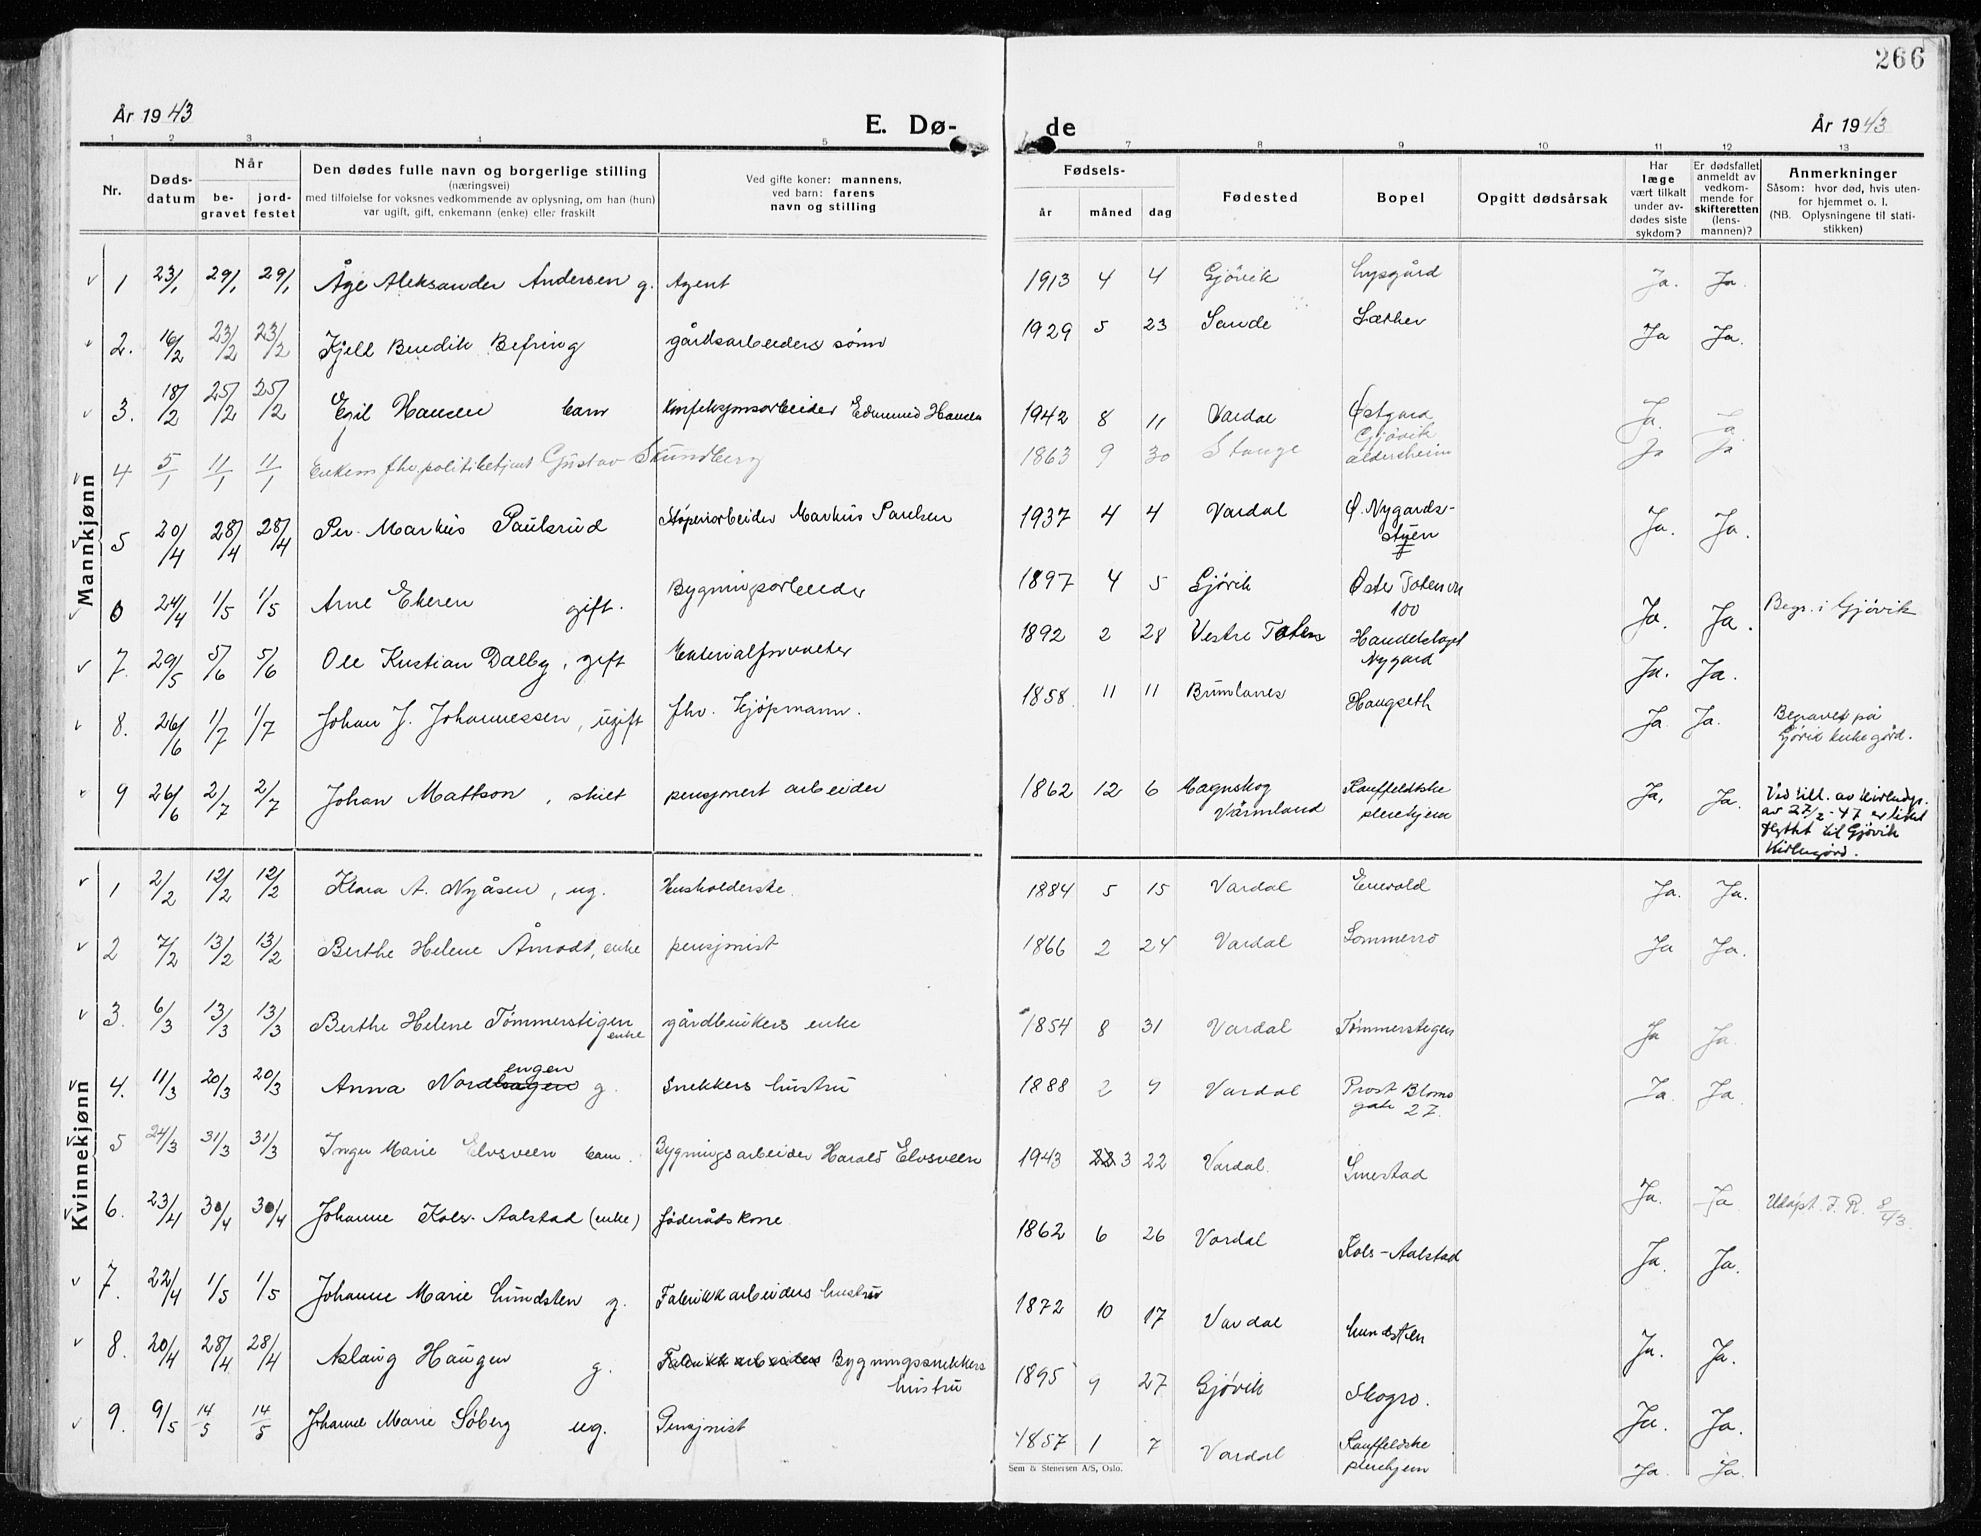 266
År 1943
E. Dø-
de
År 1943
1 2 3 4 5 7 8 9 10 11 12 13
Nr.
Døds-
datum
Når
be-
gravet
jord-
festet
Den dødes fulle navn og borgerlige stilling
(næringsvei)
med tilføielse for voksnes vedkommende av oplysning, om han (hun)
var ugift, gift, enkemann (enke) eller fraskilt
Ved gifte koner: mannens,
ved barn: farens
navn og stilling
Fødsels-
år
måned
dag
Fødested
Bopel
Opgitt dødsårsak
Har
læge
vært tilkalt
under av-
dødes siste
sykdom?
Er dødsfallet
anmeldt av
vedkom-
mende for
skifteretten
(lens-
mannen)?
Anmerkninger
Såsom: hvor død, hvis uten-
for hjemmet o. l.
(NB. Oplysningene til stati-
stikken)
Mannkjønn
1 23/1 29/1 29/1 Åge Aleksander Andersen g. Agent 1913 4 4 Gjövik Lysgård Ja. Ja.
2. 16/2 23/2 23/2 Kjell Bendik Befring gårdsarbeiders sønn 1929 5 23 Sande Sæther Ja Ja.
3. 18/2 25/2 25/2 Egil Hansen barn Konfeksjonsarbeider Edmund Hansen 1942 8 11 Vardal Østgard Ja. Ja
4 5/1 11/1 11/1 Enkem. fhv. politibetjent Gustav Skundberg 1863 9 30 Stange Gjövik
aldersheim Ja Ja
5 20/4 28/4 28/4 Per Markus Paulsrud Støperiarbeider Markus Paulsen 1937 4 4 Vardal Ø. Nygards-
stuen Ja. Ja.
6 24/4 1/5 1/5 Arne Ekeren gift. Bygningsarbeider 1897 4 5 Gjövik Øster Totenvn
100 Ja. Ja. Begr. i Gjövik
7. 29/5 5/6 5/6 Ole Kristian Dalby, gift Materialforvalter 1892 2 28 Vestre Toten Handelslaget
Nygard Ja. Ja.
8. 26/6 1/7 1/7 Johan J. Johannessen, ugift fhv. kjøpmann. 1858 11 11 Haugseth Ja. Ja. Begravet på
Gjövik kirkegård.
9 26/6 2/7 2/7 Johan Mattson, skilt pensjonert arbeider 1862 12 6 Magnskog
Värmland Kauffeldtske
pleiehjem Ja, Ja. Ved till. av kirkedep.
av 27/2-47 er liket
flyttet til Gjövik
Kirkegård.
Kvinnekjønn
1 2/2 12/2 12/2 Klara A. Nyåsen, ug. Husholderske. 1884 5 15 Vardal Enevold Ja. Ja.
2 7/2 13/2 13/2 Berthe Helene Åmodt, enke pensjonist 1866 2 24 Vardal Sommerro Ja Ja.
3. 6/3 13/3 13/3 Berthe Helene Tömmerstigen
enke gårdbrukers enke 1854 8 31 Vardal Tømmerstigen Ja Ja.
4. 11/3 20/3 20/3 Anna Nordhagen engen g. Snekkers hustru 1888 2 9 Vardal Prost Bloms
gate 27. Ja. Ja.
5 24/3 31/3 31/3 Inger Marie Elvsveen barn. Bygningsarbeider Harald Elvsveen 1943 22 3 22 Vardal. Smestad Ja. Ja Udöpt. F. R. 8/43.
6. 23/4 30/4 30/4 Johanne Kols-Aalstad (enke) föderådskone 1862 6 26 Vardal Kols-Aalstad Ja. Ja.
7. 22/4 1/5 1/5 Johanne Marie Lundsten g. Fabrikkarbeiders hustru 1872 10 17 Vardal Lundsten Ja. Ja.
8. 20/4 28/4 28/4 Aslaug Haugen g. Fabrikkarbeiders Bygningssnekkers
hustru 1895 9 27 Gjövik Skogro. Ja. Ja.
9. 9/5 14/5 14/5 Johanne Marie Söberg ug. Pensjonist 1857 1 7 Vardal Kauffeldske
pleiehjem Ja. Ja.
Sem & Stenersen A/S, Oslo.